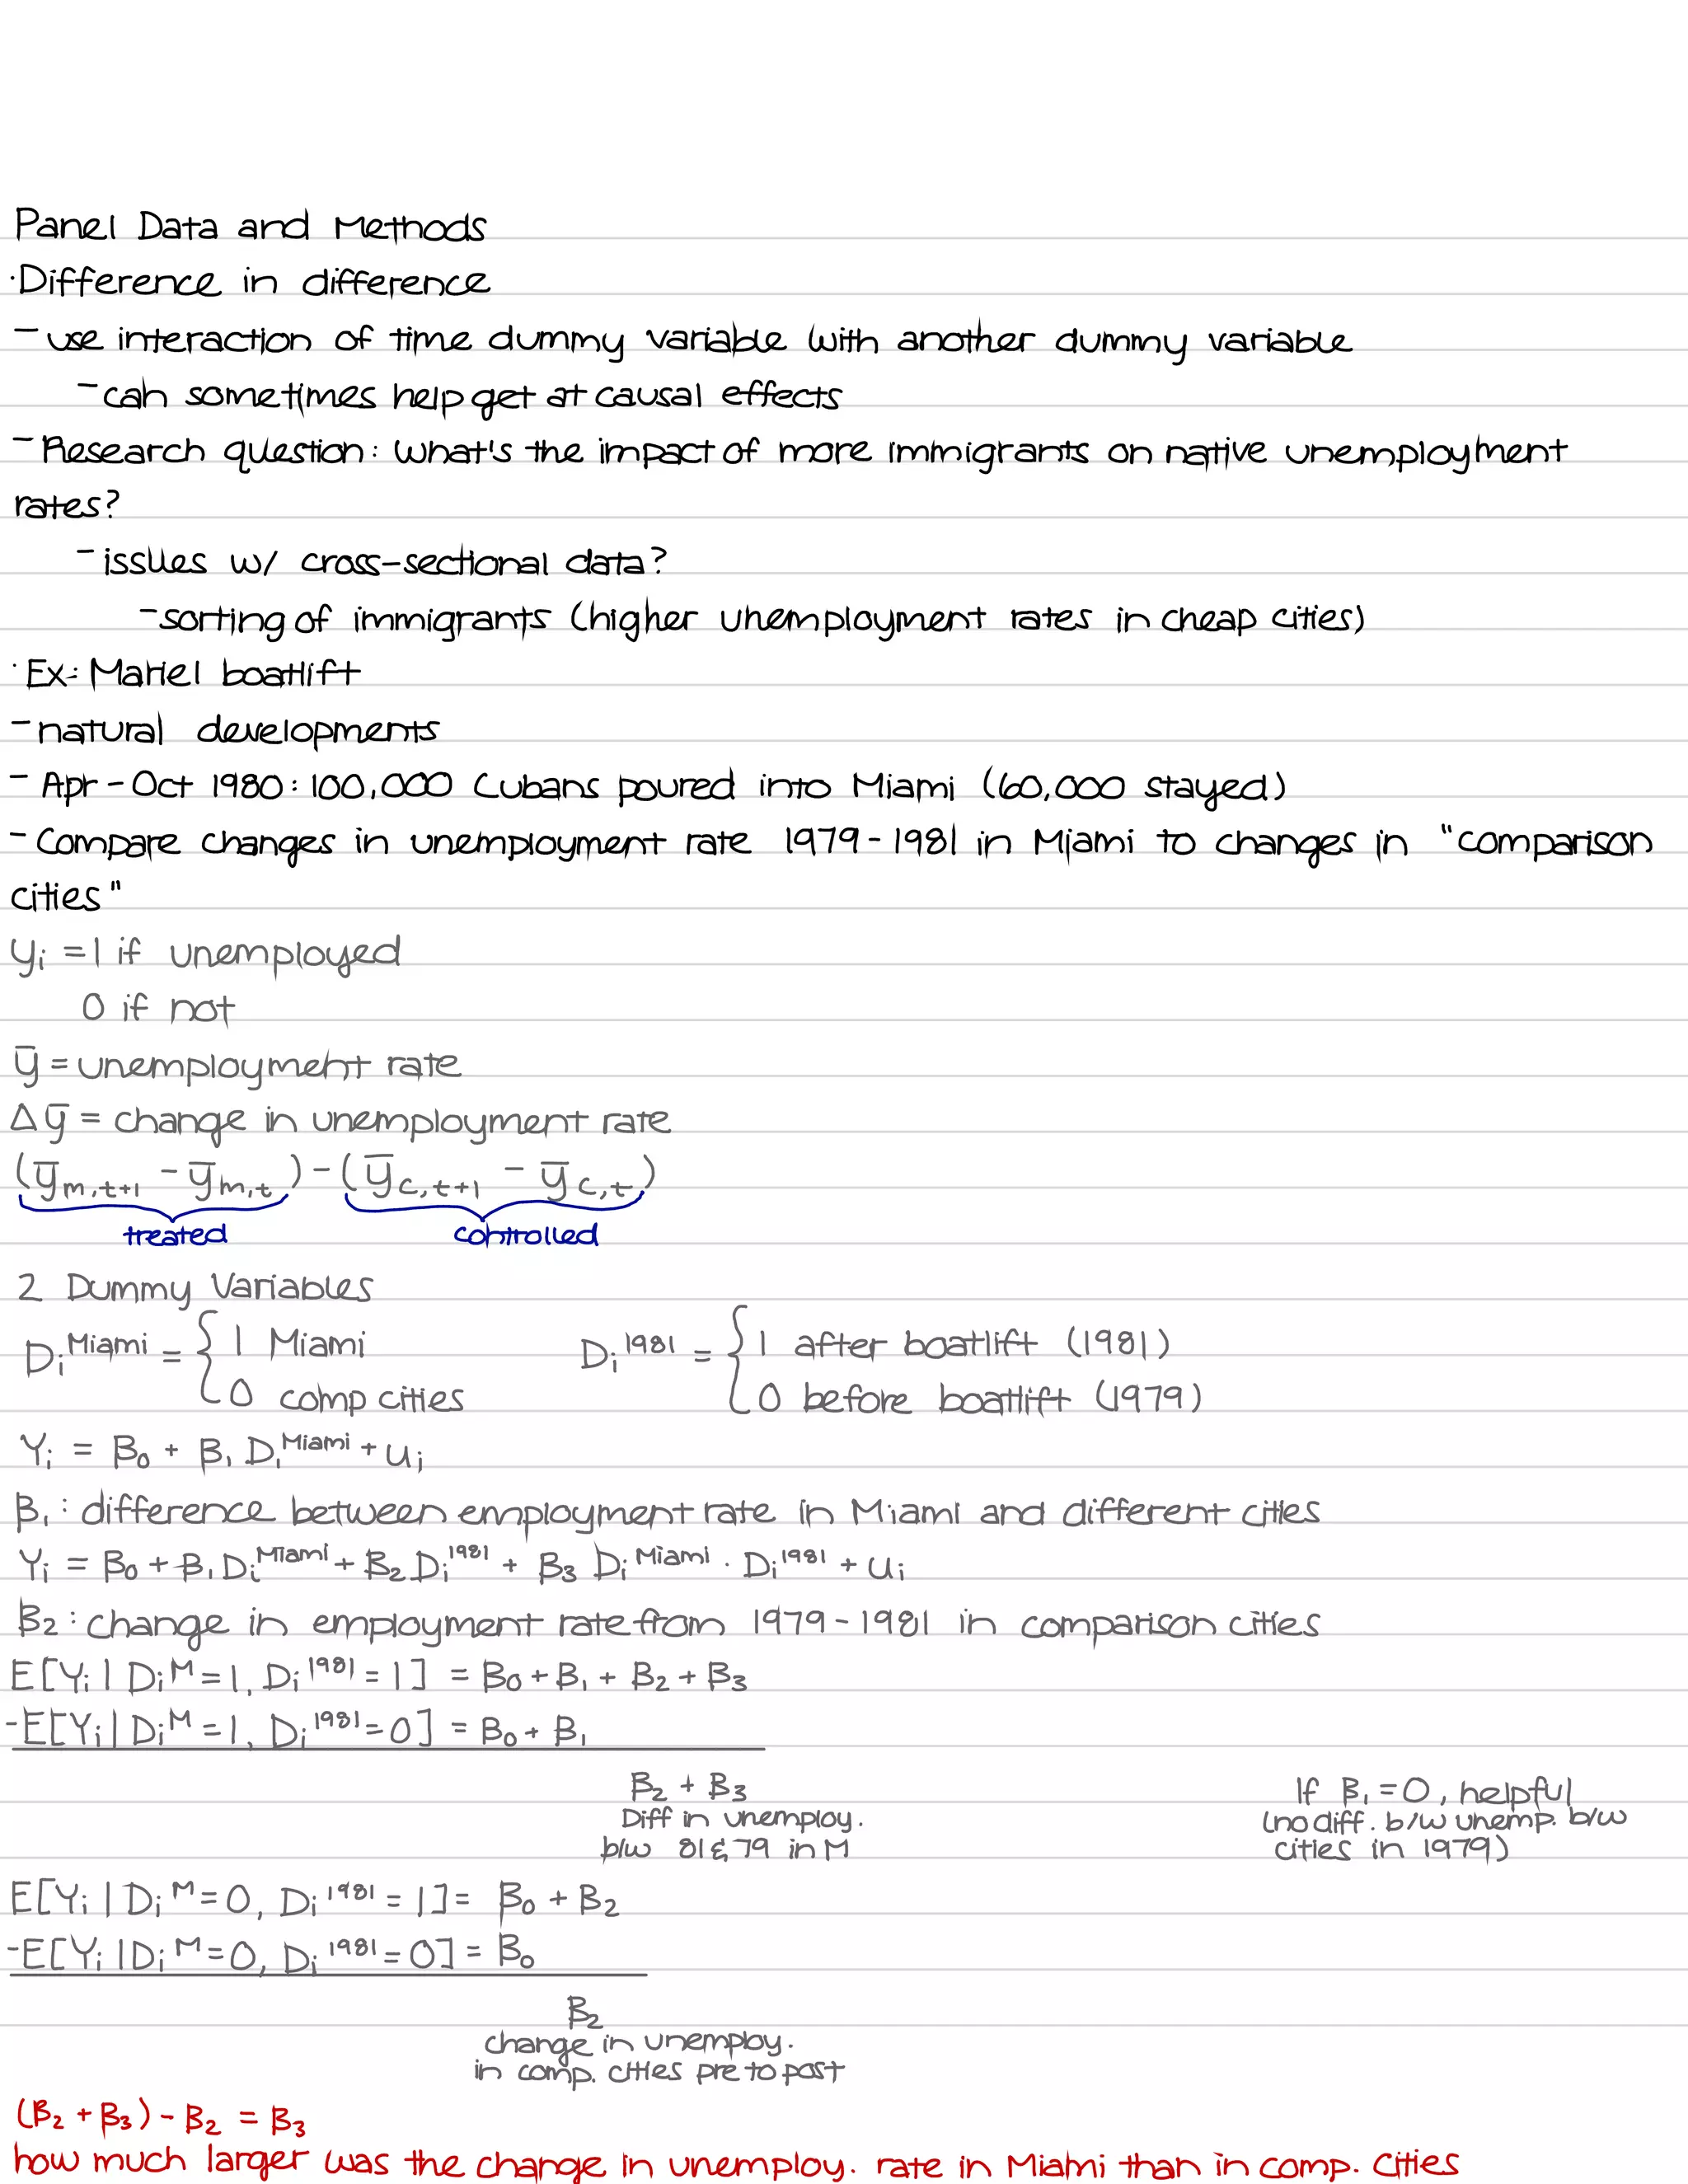 Panel Data and Methods
·Difference in difference
- use interaction of time dummy variable with another dummy variable
- can sometimes help get at causal effects
- Research question: What's the impact of more immigrants on native unemployment
rates?
- issues w/ cross-sectional data?
- sorting of immigrants (higher unemployment rates in cheap cities)
· Ex: Mariel boatlift
- natural developments
- Apr - Oct 1980: 100,000 Cubans poured into Miami (60,000 stayed)
- Compare changes in unemployment rate 1979 - 1981 in Miami to changes in "comparison
cities"
yᵢ = 1 if unemployed
0 if not
ȳ = unemployment rate
Δȳ = change in unemployment rate
(ȳₘ,ₜ₊₁ - ȳₘ,ₜ) - (ȳ_c,ₜ₊₁ - ȳ_c,ₜ)
treated controlled
2 Dummy Variables
Dᵢ^Miami = { 1 Miami Dᵢ^1981 = { 1 after boatlift (1981)
0 comp cities 0 before boatlift (1979)
Yᵢ = B₀ + B₁ Dᵢ^Miami + uᵢ
B₁: difference between employment rate in Miami and different cities
Yᵢ = B₀ + B₁Dᵢ^Miami + B₂Dᵢ^1981 + B₃ Dᵢ^Miami · Dᵢ^1981 + uᵢ
B₂: change in employment rate from 1979 - 1981 in comparison cities
E[Yᵢ | Dᵢ^M = 1, Dᵢ^1981 = 1] = B₀ + B₁ + B₂ + B₃
-E[Yᵢ | Dᵢ^M = 1, Dᵢ^1981 = 0] = B₀ + B₁
B₂ + B₃
Diff in unemploy.
b/w 81 & 79 in M
If B₁ = 0, helpful
(no diff. b/w unemp. b/w
cities in 1979)
E[Yᵢ | Dᵢ^M = 0, Dᵢ^1981 = 1] = B₀ + B₂
-E[Yᵢ | Dᵢ^M = 0, Dᵢ^1981 = 0] = B₀
B₂
change in unemploy.
in comp. cities pre to post
(B₂ + B₃) - B₂ = B₃
how much larger was the change in unemploy. rate in Miami than in comp. cities